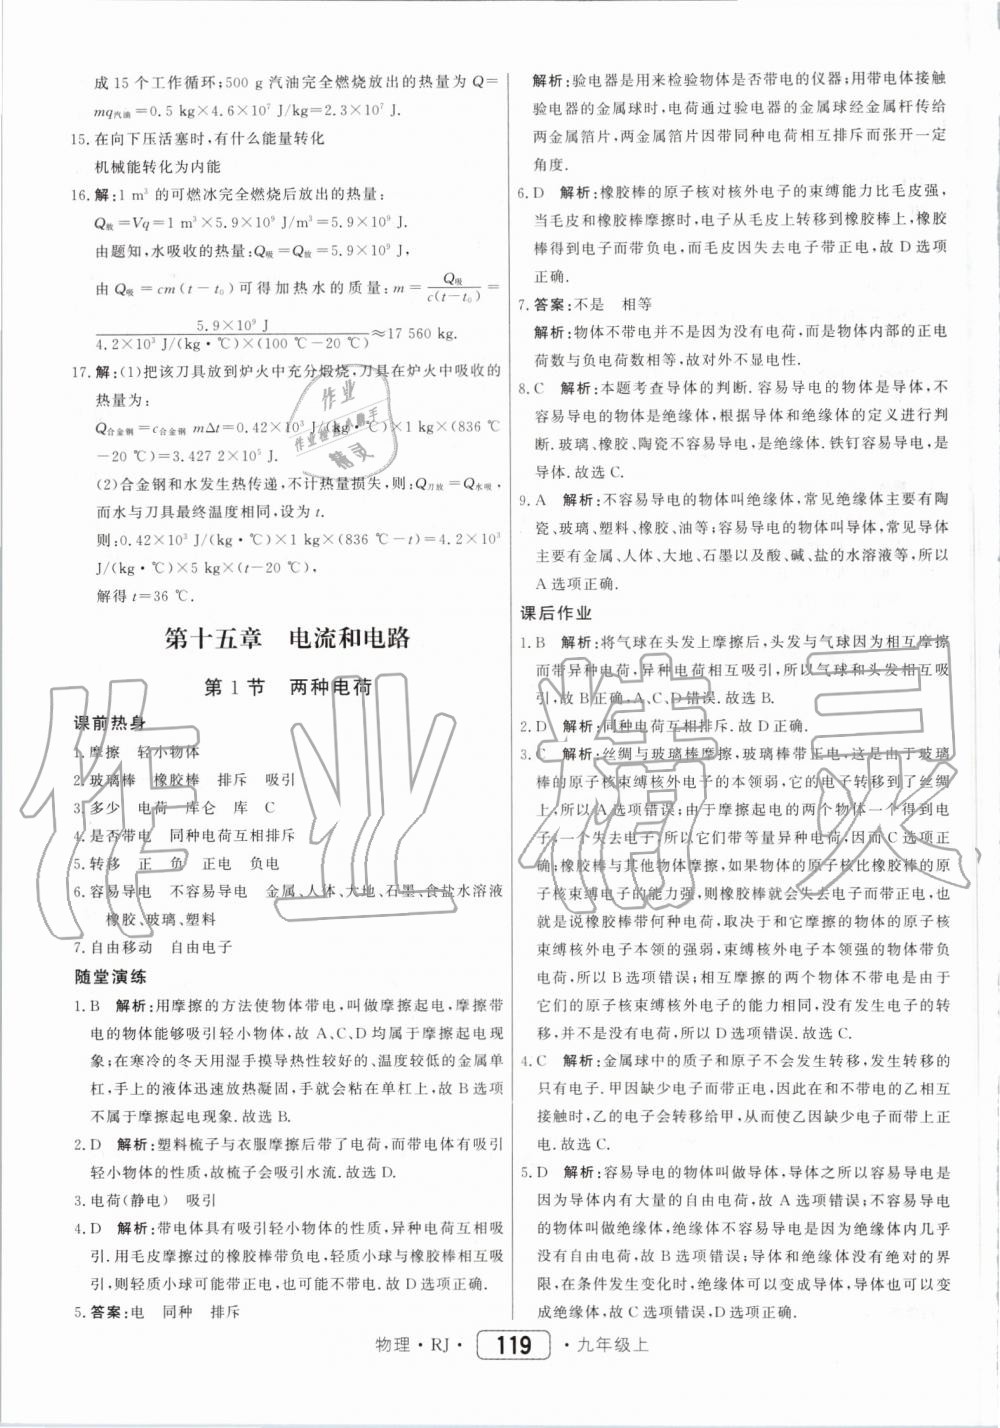 成 15 个工作循环;500 g 汽油完全燃烧放出的热量为 Q=
mq汽油=0.5 kg×4.6×10⁷ J/kg=2.3×10⁷ J.
15.在向下压活塞时,有什么能量转化
机械能转化为内能
16.解:1 m³ 的可燃冰完全燃烧后放出的热量:
Q放=Vq=1 m³×5.9×10⁹ J/m³=5.9×10⁹ J.
由题知,水吸收的热量:Q吸=Q放=5.9×10⁹ J,
由 Q吸=cm(t-t₀)可得加热水的质量:m=Q吸/c(t-t₀)=
5.9×10⁹ J/4.2×10³ J/(kg·℃)×(100 ℃-20 ℃)≈17 560 kg.
17.解:(1)把该刀具放到炉火中充分煅烧,刀具在炉火中吸收的
热量为:
Q合金钢=c合金钢 mΔt=0.42×10³ J/(kg·℃)×1 kg×(836 ℃
-20 ℃)=3.427 2×10⁵ J.
(2)合金钢和水发生热传递,不计热量损失,则:Q刀放=Q水吸,
而水与刀具最终温度相同,设为 t.
则:0.42×10³ J/(kg·℃)×1 kg×(836 ℃-t)=4.2×10³
J/(kg·℃)×5 kg×(t-20 ℃),
解得 t=36 ℃.
第十五章 电流和电路
第 1 节 两种电荷
课前热身
1.摩擦 轻小物体
2.玻璃棒 橡胶棒 排斥 吸引
3.多少 电荷 库仑 库 C
4.是否带电 同种电荷互相排斥
5.转移 正 负 正电 负电
6.容易导电 不容易导电 金属、人体、大地、石墨、食盐水溶液
橡胶、玻璃、塑料
7.自由移动 自由电子
随堂演练
1.B 解析:用摩擦的方法使物体带电,叫做摩擦起电,摩擦带
电的物体能够吸引轻小物体,故 A、C、D 均属于摩擦起电现
象;在寒冷的冬天用湿手摸导热性较好的、温度较低的金属单
杠,手上的液体迅速放热凝固,手就会粘在单杠上,故 B 选项
不属于摩擦起电现象.故选 B.
2.D 解析:塑料梳子与衣服摩擦后带了电荷,而带电体有吸引
轻小物体的性质,故梳子会吸引水流.故选 D.
3.电荷(静电) 吸引
4.D 解析:带电体具有吸引轻小物体的性质,异种电荷互相吸
引.用毛皮摩擦过的橡胶棒带负电,轻质小球与橡胶棒互相吸
引,则轻质小球可能带正电,也可能不带电.故 D 选项正确.
5.答案:电 同种 排斥
解析:验电器是用来检验物体是否带电的仪器;用带电体接触
验电器的金属球时,电荷通过验电器的金属球经金属杆传给
两金属箔片,两金属箔片因带同种电荷相互排斥而张开一定
角度.
6.D 解析:橡胶棒的原子核对核外电子的束缚能力比毛皮强,
当毛皮和橡胶棒摩擦时,电子从毛皮上转移到橡胶棒上,橡胶
棒得到电子而带负电,而毛皮因失去电子带正电,故 D 选项
正确.
7.答案:不是 相等
解析:物体不带电并不是因为没有电荷,而是物体内部的正电
荷数与负电荷数相等,故对外不显电性.
8.C 解析:本题考查导体的判断.容易导电的物体是导体,不
容易导电的物体是绝缘体,根据导体和绝缘体的定义进行判
断.玻璃、橡胶、陶瓷不容易导电,是绝缘体.铁钉容易导电,是
导体.故选 C.
9.A 解析:不容易导电的物体叫绝缘体,常见绝缘体主要有陶
瓷、玻璃、塑料、橡胶、油等;容易导电的物体叫导体,常见导体
主要有金属、人体、大地、石墨以及酸、碱、盐的水溶液等,所以
A 选项正确.
课后作业
1.B 解析:将气球在头发上摩擦后,头发与气球因为相互摩擦
而带异种电荷,异种电荷相互吸引,所以气球和头发相互吸
引,故 B 正确,A、C、D 错误.故选 B.
2.D 解析:同种电荷互相排斥.故 D 正确.
3.C 解析:丝绸与玻璃棒摩擦,玻璃棒带正电,这是由于玻璃
棒的原子核束缚核外电子的本领弱,它的电子转移到了丝绸
上,所以 A 选项错误;由于摩擦起电的两个物体一个得到电
子,一个失去电子,所以它们带等量异种电荷,因而 C 选项正
确;橡胶棒与其他物体摩擦,如果物体的原子核比橡胶棒的原
子核束缚电子的能力强,则橡胶棒就会失去电子而带正电,也
就是说橡胶棒带何种电荷,取决于和它摩擦的物体的原子核
束缚核外电子本领的强弱,束缚核外电子本领强的物体带负
电荷,所以 B 选项错误;相互摩擦的两个物体不带电是由于
它们的原子核束缚核外电子的能力相同,没有发生电子的转
移,并不是没有电荷,所以 D 选项错误.故选 C.
4.C 解析:金属球中的质子和原子不会发生转移,发生转移的
只有电子.甲因缺少电子而带正电,因此在和不带电的乙相互
接触时,乙的电子会转移给甲,从而使乙因缺少电子而带上正
电.故选 C.
5.D 解析:容易导电的物体叫做导体,导体之所以容易导电是
因为导体内有大量的自由电荷,故 A 选项错误;不容易导电
的物体叫做绝缘体,绝缘体不容易导电是因为绝缘体内几乎
没有自由电荷,故 B 选项错误;导体和绝缘体没有绝对的界
限,在条件发生变化时,绝缘体可以变成导体,导体也可以变
成绝缘体,故 C 选项错误,D 选项正确.
物理·RJ· 119 ·九年级上
作业精灵
作业
作业检查小助手
精灵